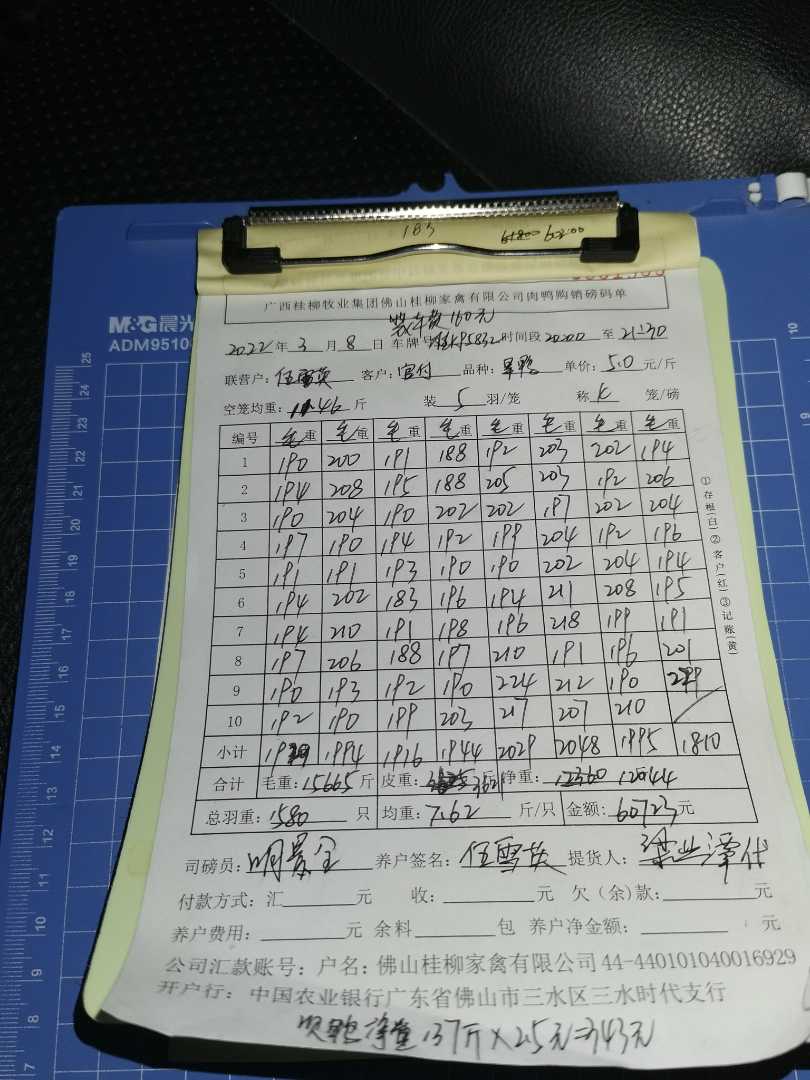 183 61800 60200
M&G晨光
ADM9510
广西桂柳牧业集团佛山桂柳家禽有限公司肉鸭购销磅码单
装车费160元
2022年3月8日 车牌号 P5832 时间段 20200 至 21:30
联营户:伍雪英 客户:宜付 品种: 单价:5.0元/斤
空笼均重:11.46斤 装5羽/笼 称K笼/磅
编号 毛重 毛重 毛重 毛重 毛重 毛重 毛重 毛重
1 190 200 191 188 192 203 202 194
2 194 208 195 188 205 203 192 206
3 190 204 190 202 202 197 202 204
4 197 190 194 192 199 204 192 196
5 191 191 193 190 190 202 204 194
6 194 202 183 196 194 211 208 195
7 194 210 191 198 196 218 199 191
8 197 206 188 197 210 191 196 201
9 190 193 192 190 224 212 190
10 192 190 199 203 217 207 210
小计 1994 1916 1944 2029 2048 1995 1810
合计 毛重:15665斤 皮重:3621 净重:12360 12044
总羽重:1580只 均重:7.62斤/只 金额:60723元
司磅员: 养户签名:伍雪英 提货人:
付款方式:汇 元 收: 元 欠(余)款: 元
养户费用: 元 余料 包 养户净金额: 元
公司汇款账号:户名:佛山桂柳家禽有限公司44-440101040016929
开户行:中国农业银行广东省佛山市三水区三水时代支行
净重137斤×2.5元=343元
①存根(白)②客户(红)③记账(黄)